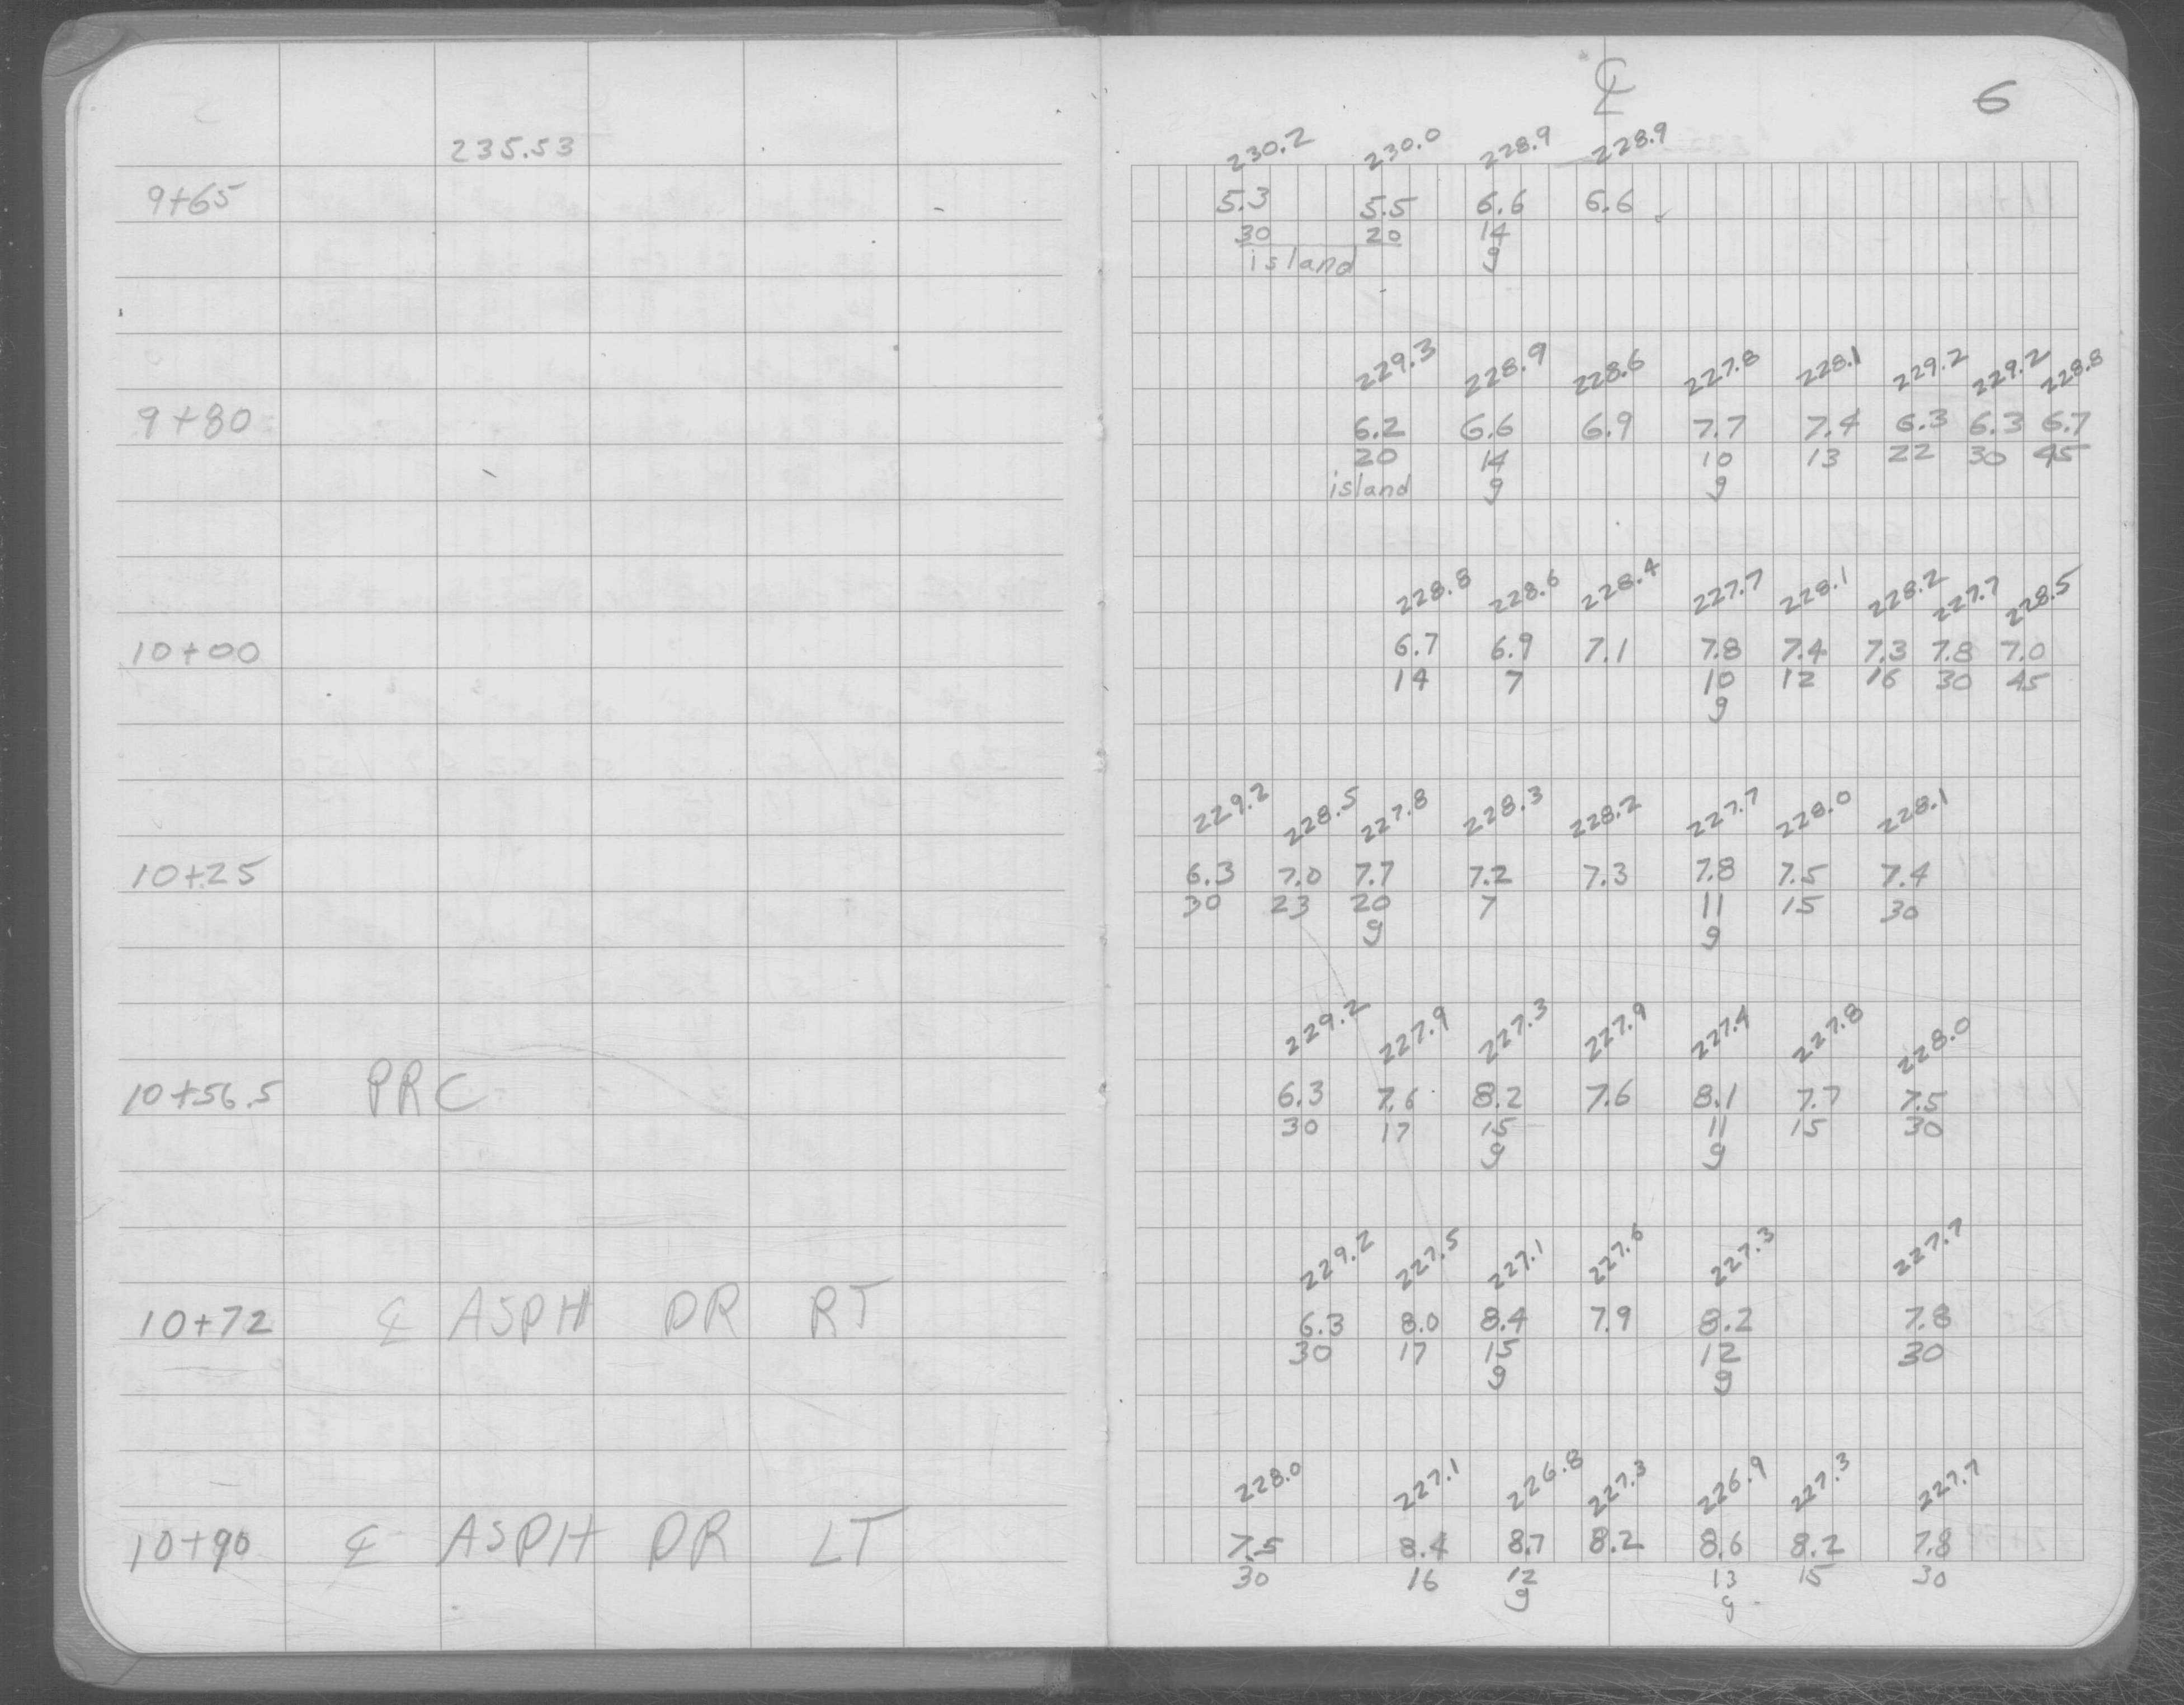 ℄ 6
235.53 230.2 230.0 228.9 228.9
9+65 5.3 5.5 6.6 6.6
30 20 14
island g
229.3 228.9 228.6 227.8 228.1 229.2 229.2 228.8
9+80 6.2 6.6 6.9 7.7 7.4 6.3 6.3 6.7
20 14 10 13 22 30 45
island g g
228.8 228.6 228.4 227.7 228.1 228.2 227.7 228.5
10+00 6.7 6.9 7.1 7.8 7.4 7.3 7.8 7.0
14 7 10 12 16 30 45
g
229.2 228.5 227.8 228.3 228.2 227.7 228.0 228.1
10+25 6.3 7.0 7.7 7.2 7.3 7.8 7.5 7.4
30 23 20 7 11 15 30
g g
229.2 227.9 227.3 227.9 227.4 227.8 228.0
10+56.5 PRC 6.3 7.6 8.2 7.6 8.1 7.7 7.5
30 17 15 11 15 30
g g
229.2 227.5 227.1 227.6 227.3 227.7
10+72 ℄ ASPH DR RT 6.3 8.0 8.4 7.9 8.2 7.8
30 17 15 12 30
g g
228.0 227.1 226.8 227.3 226.9 227.3 227.7
10+90 ℄ ASPH DR LT 7.5 8.4 8.7 8.2 8.6 8.2 7.8
30 16 12 13 15 30
g g